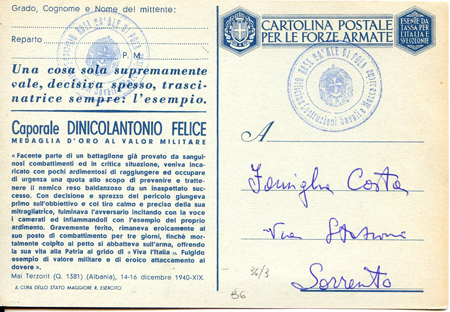 Grado, Cognome e Nome del mittente:
Reparto
P. M.
Una cosa sola supremamente
vale, decisiva spesso, trasci-
natrice sempre: l'esempio.
Caporale DINICOLANTONIO FELICE
MEDAGLIA D'ORO AL VALOR MILITARE
« Facente parte di un battaglione già provato da sangui-
nosi combattimenti ed in critica situazione, veniva inca-
ricato con pochi ardimentosi di raggiungere ed occupare
di urgenza una quota allo scopo di prevenire e tratte-
nere il nemico reso baldanzoso da un inaspettato suc-
cesso. Con decisione e sprezzo del pericolo giungeva
primo sull'obbiettivo e col tiro calmo e preciso della sua
mitragliatrice, fulminava l'avversario incitando con la voce
i camerati ed infiammandoli con l'esempio del proprio
ardimento. Gravemente ferito, rimaneva eroicamente al
suo posto di combattimento per tre giorni, finchè mor-
talmente colpito al petto si abbatteva sull'arma, offrendo
la sua vita alla Patria al grido di « Viva l'Italia ». Fulgido
esempio di valore militare e di eroico attaccamento al
dovere ».
Mai Terzorit (Q. 1381) (Albania), 14-16 dicembre 1940-XIX.
A CURA DELLO STATO MAGGIORE R. ESERCITO
CARTOLINA POSTALE
PER LE FORZE ARMATE
ESENTE DA
TASSA PER
L'ITALIA E
SVIZZERA
A
Famiglia Costa
Via Stazione
Sorrento
36/3
B6